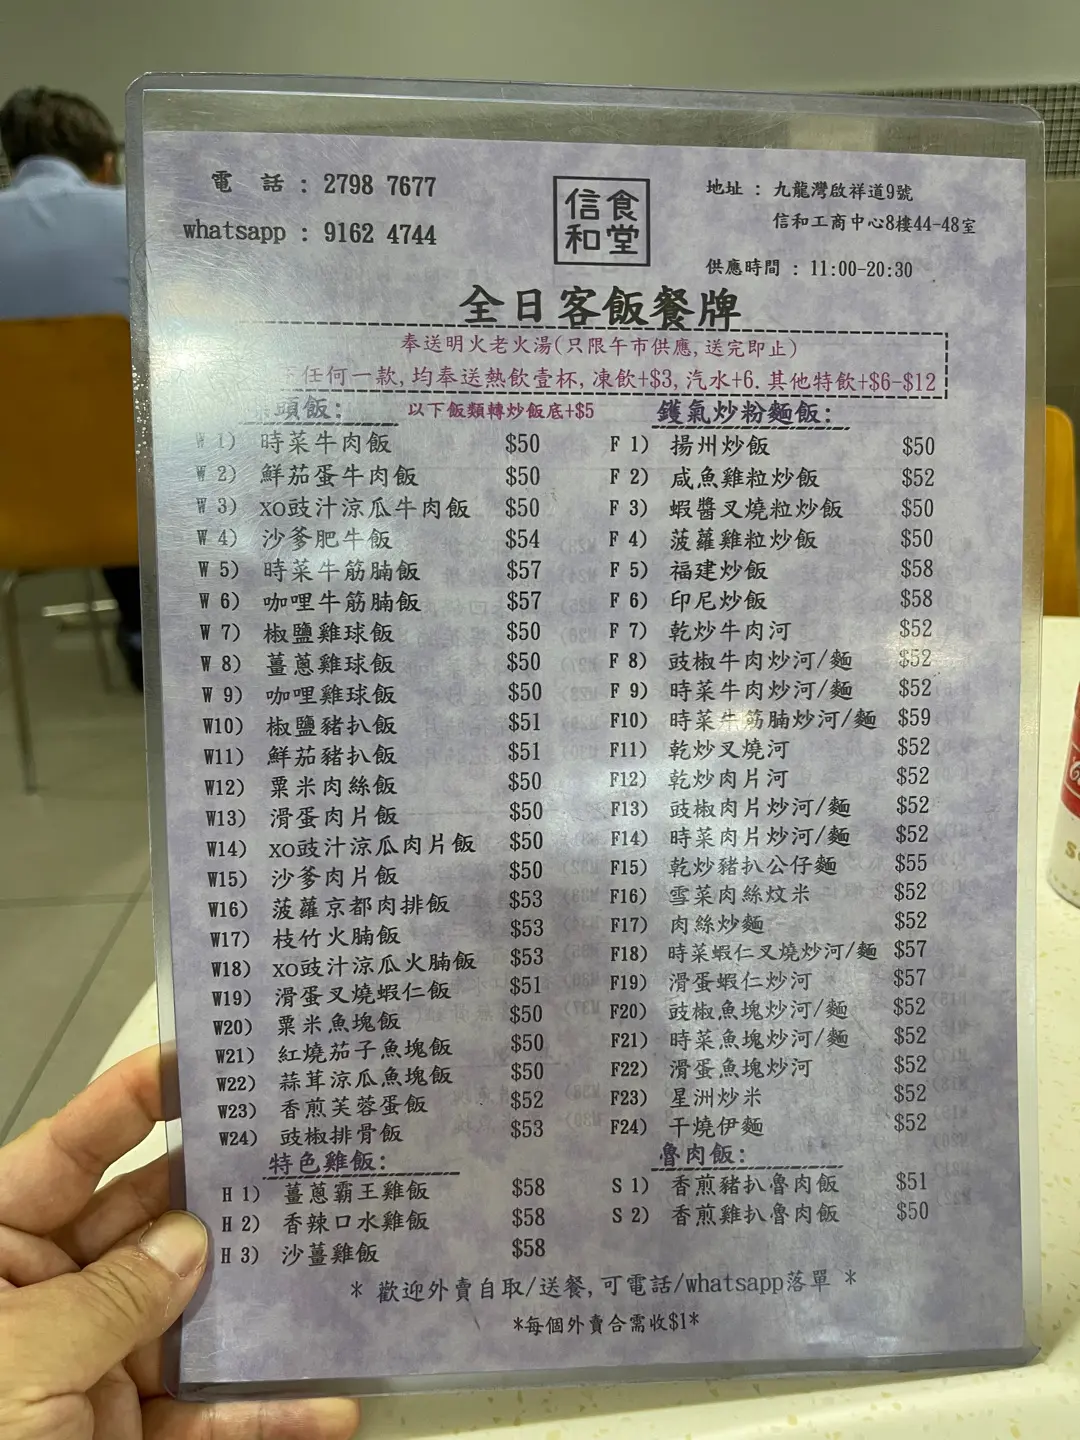 電 話 : 2798 7677
whatsapp : 9162 4744
信食
和堂
地址 : 九龍灣啟祥道9號
信和工商中心8樓44-48室
供應時間 : 11:00-20:30
全日客飯餐牌
奉送明火老火湯(只限午市供應,送完即止)
任何一款,均奉送熱飲壹杯,凍飲+$3,汽水+6.其他特飲+$6-$12
頭飯: 以下飯類轉炒飯底+$5
W 1) 時菜牛肉飯 $50
W 2) 鮮茄蛋牛肉飯 $50
W 3) XO豉汁涼瓜牛肉飯 $50
W 4) 沙爹肥牛飯 $54
W 5) 時菜牛筋腩飯 $57
W 6) 咖哩牛筋腩飯 $57
W 7) 椒鹽雞球飯 $50
W 8) 薑蔥雞球飯 $50
W 9) 咖哩雞球飯 $50
W10) 椒鹽豬扒飯 $51
W11) 鮮茄豬扒飯 $51
W12) 粟米肉絲飯 $50
W13) 滑蛋肉片飯 $50
W14) XO豉汁涼瓜肉片飯 $50
W15) 沙爹肉片飯 $50
W16) 菠蘿京都肉排飯 $53
W17) 枝竹火腩飯 $53
W18) XO豉汁涼瓜火腩飯 $53
W19) 滑蛋叉燒蝦仁飯 $51
W20) 粟米魚塊飯 $50
W21) 紅燒茄子魚塊飯 $50
W22) 蒜茸涼瓜魚塊飯 $50
W23) 香煎芙蓉蛋飯 $52
W24) 豉椒排骨飯 $53
特色雞飯:
H 1) 薑蔥霸王雞飯 $58
H 2) 香辣口水雞飯 $58
H 3) 沙薑雞飯 $58
鑊氣炒粉麵飯:
F 1) 揚州炒飯 $50
F 2) 咸魚雞粒炒飯 $52
F 3) 蝦醬叉燒粒炒飯 $50
F 4) 菠蘿雞粒炒飯 $50
F 5) 福建炒飯 $58
F 6) 印尼炒飯 $58
F 7) 乾炒牛肉河 $52
F 8) 豉椒牛肉炒河/麵 $52
F 9) 時菜牛肉炒河/麵 $52
F10) 時菜牛筋腩炒河/麵 $59
F11) 乾炒叉燒河 $52
F12) 乾炒肉片河 $52
F13) 豉椒肉片炒河/麵 $52
F14) 時菜肉片炒河/麵 $52
F15) 乾炒豬扒公仔麵 $55
F16) 雪菜肉絲炆米 $52
F17) 肉絲炒麵 $52
F18) 時菜蝦仁叉燒炒河/麵 $57
F19) 滑蛋蝦仁炒河 $57
F20) 豉椒魚塊炒河/麵 $52
F21) 時菜魚塊炒河/麵 $52
F22) 滑蛋魚塊炒河 $52
F23) 星洲炒米 $52
F24) 干燒伊麵 $52
魯肉飯:
S 1) 香煎豬扒魯肉飯 $51
S 2) 香煎雞扒魯肉飯 $50
* 歡迎外賣自取/送餐,可電話/whatsapp落單 *
*每個外賣合需收$1*